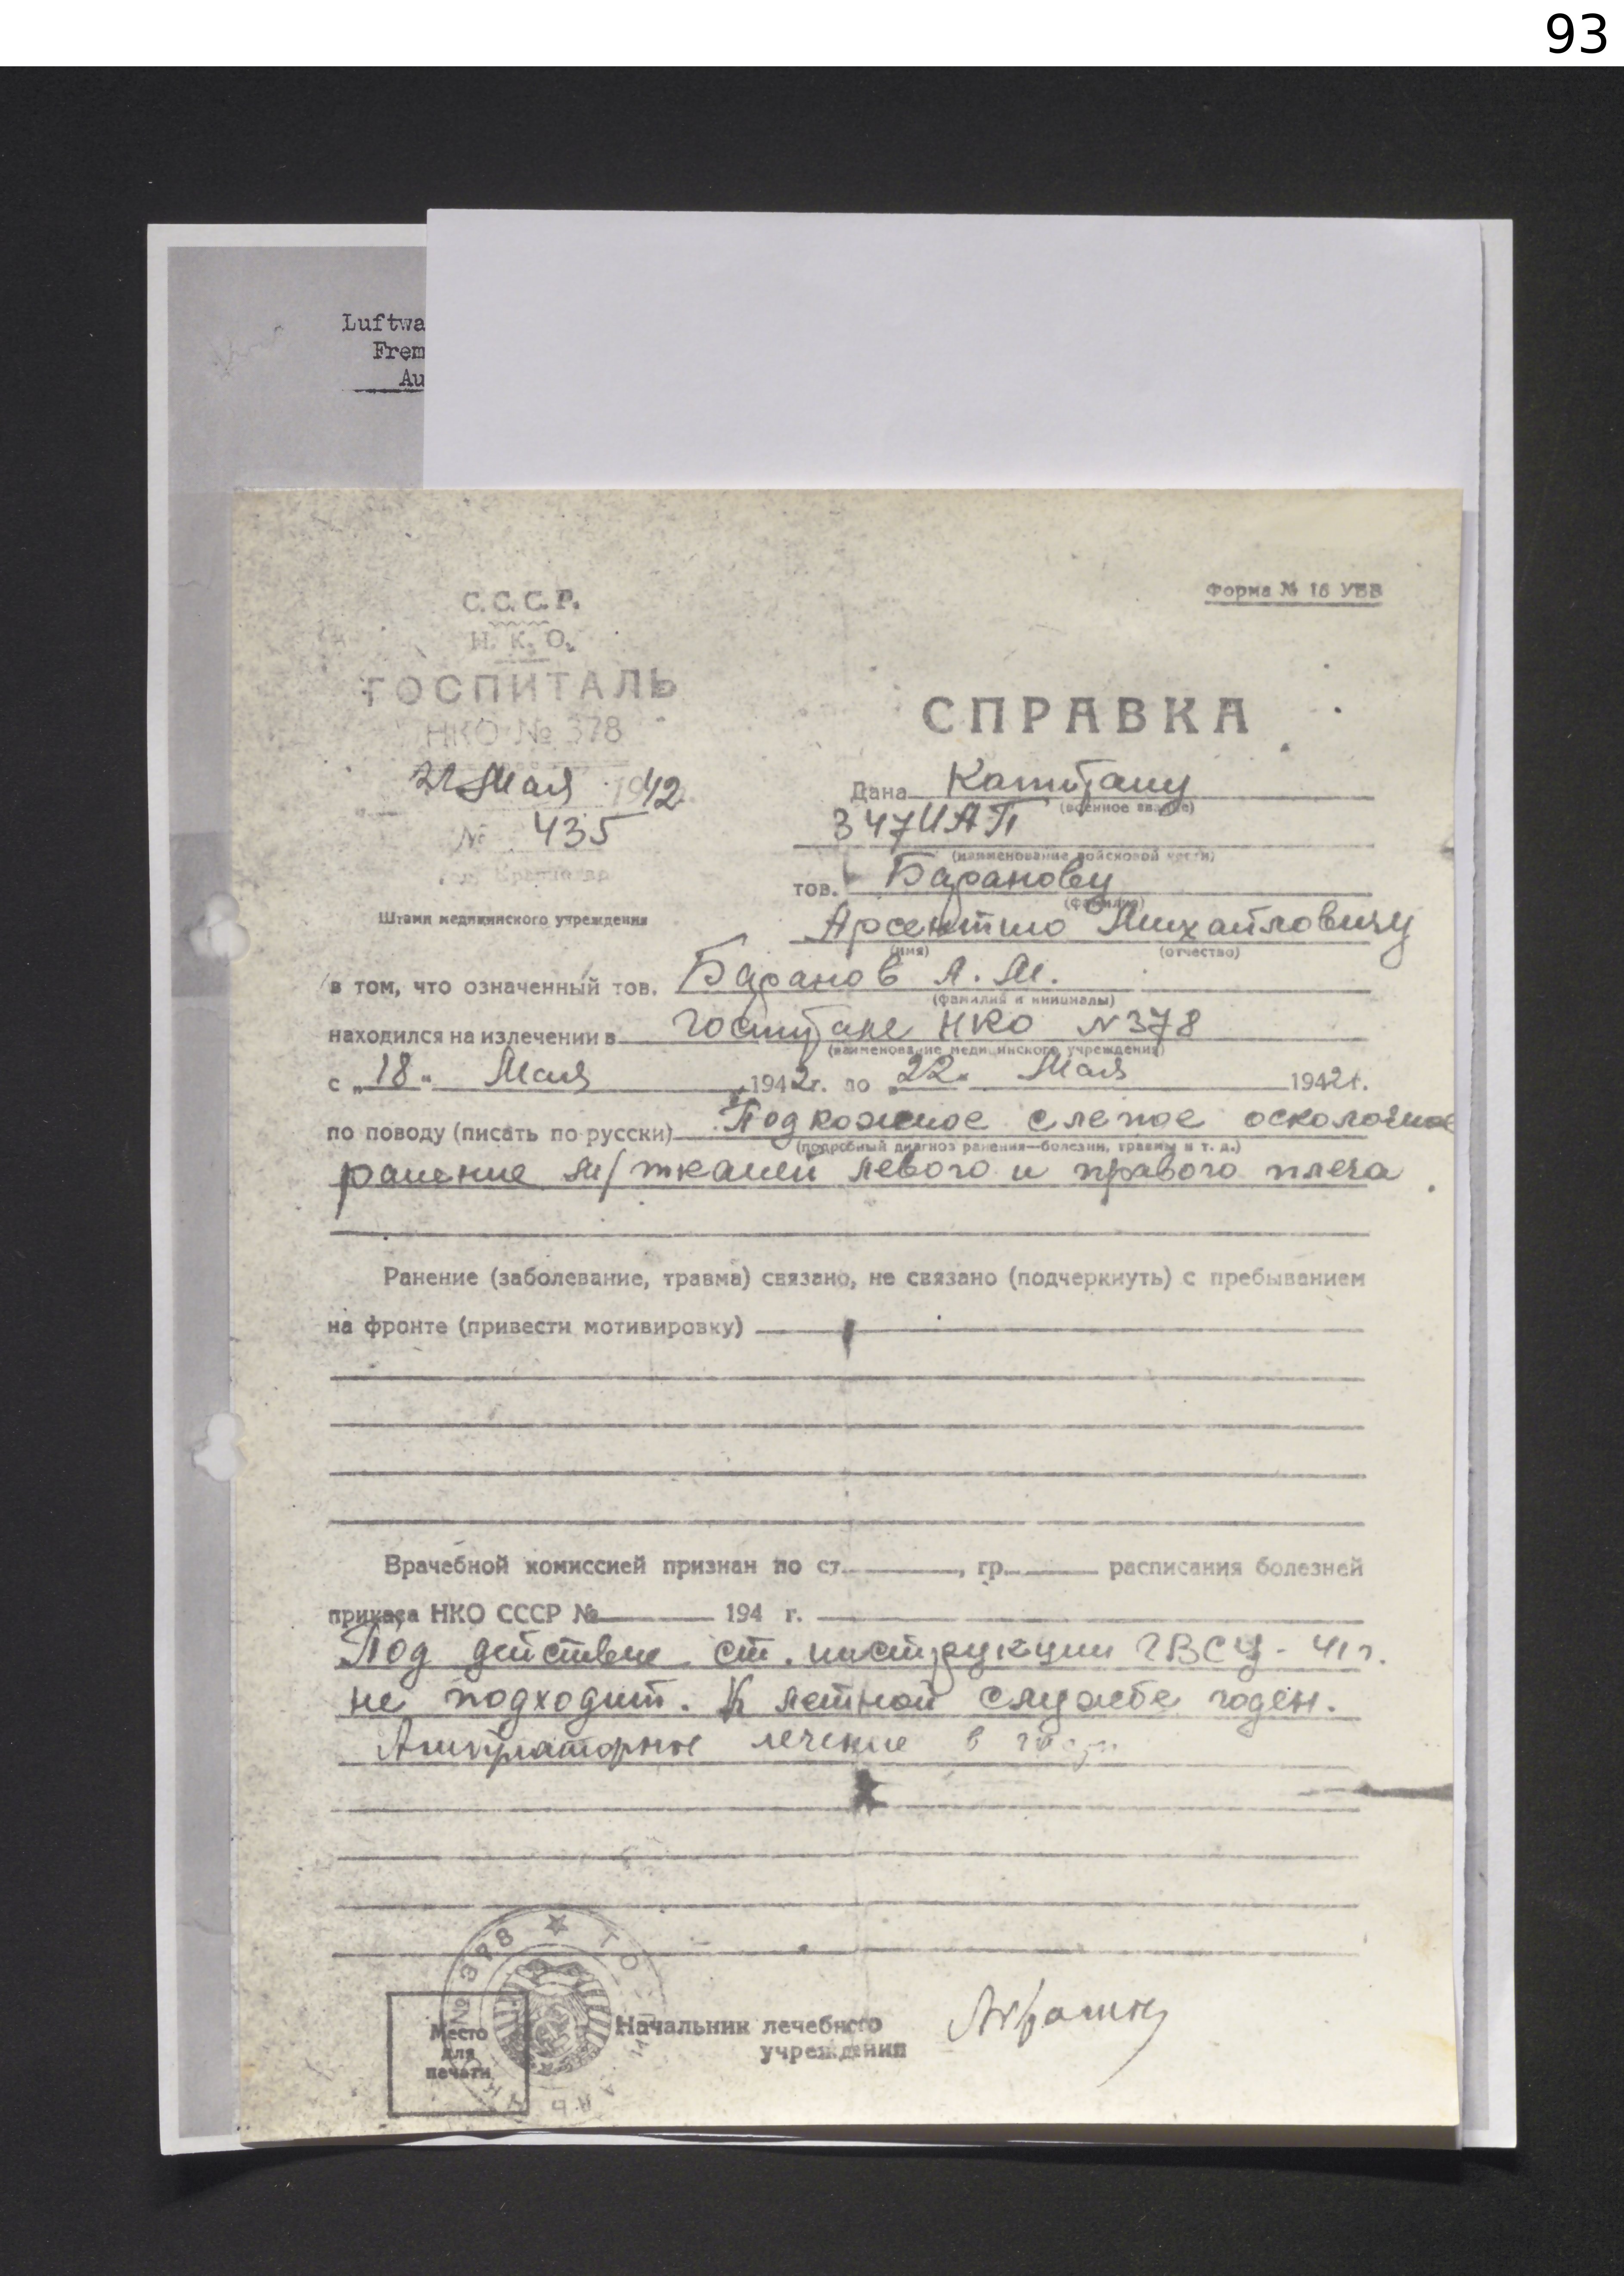 93
Luftwa
Frem
Au
Форма № 16 УВВ
С.С.С.Р.
Н.К.О.
ГОСПИТАЛЬ
НКО № 378
22 Мая 1942
№ 435
Штамп медицинского учреждения
СПРАВКА
Дана Капитану
(военное звание)
347 ИАП
(наименование войсковой части)
тов. Баранову
(фамилия)
Арсентию Михайловичу
(имя) (отчество)
в том, что означенный тов. Баранов А. М.
(фамилия и инициалы)
находился на излечении в госпитале НКО № 378
(наименование медицинского учреждения)
с „18“ Мая 1942г. по „22“ Мая 1942г.
по поводу (писать по русски) Подкожное слепое осколочное
(подробный диагноз ранения—болезни, травмы и т. д.)
ранение м/тканей левого и правого плеча
Ранение (заболевание, травма) связано, не связано (подчеркнуть) с пребыванием
на фронте (привести мотивировку)
Врачебной комиссией признан по ст. , гр. расписания болезней
приказа НКО СССР № 194 г.
Под действие ст. инструкции ГВСУ - 41 г.
не подходит. К летной службе годен.
лечение в
№ 378
Место
для
печати
Начальник лечебного
учреждения